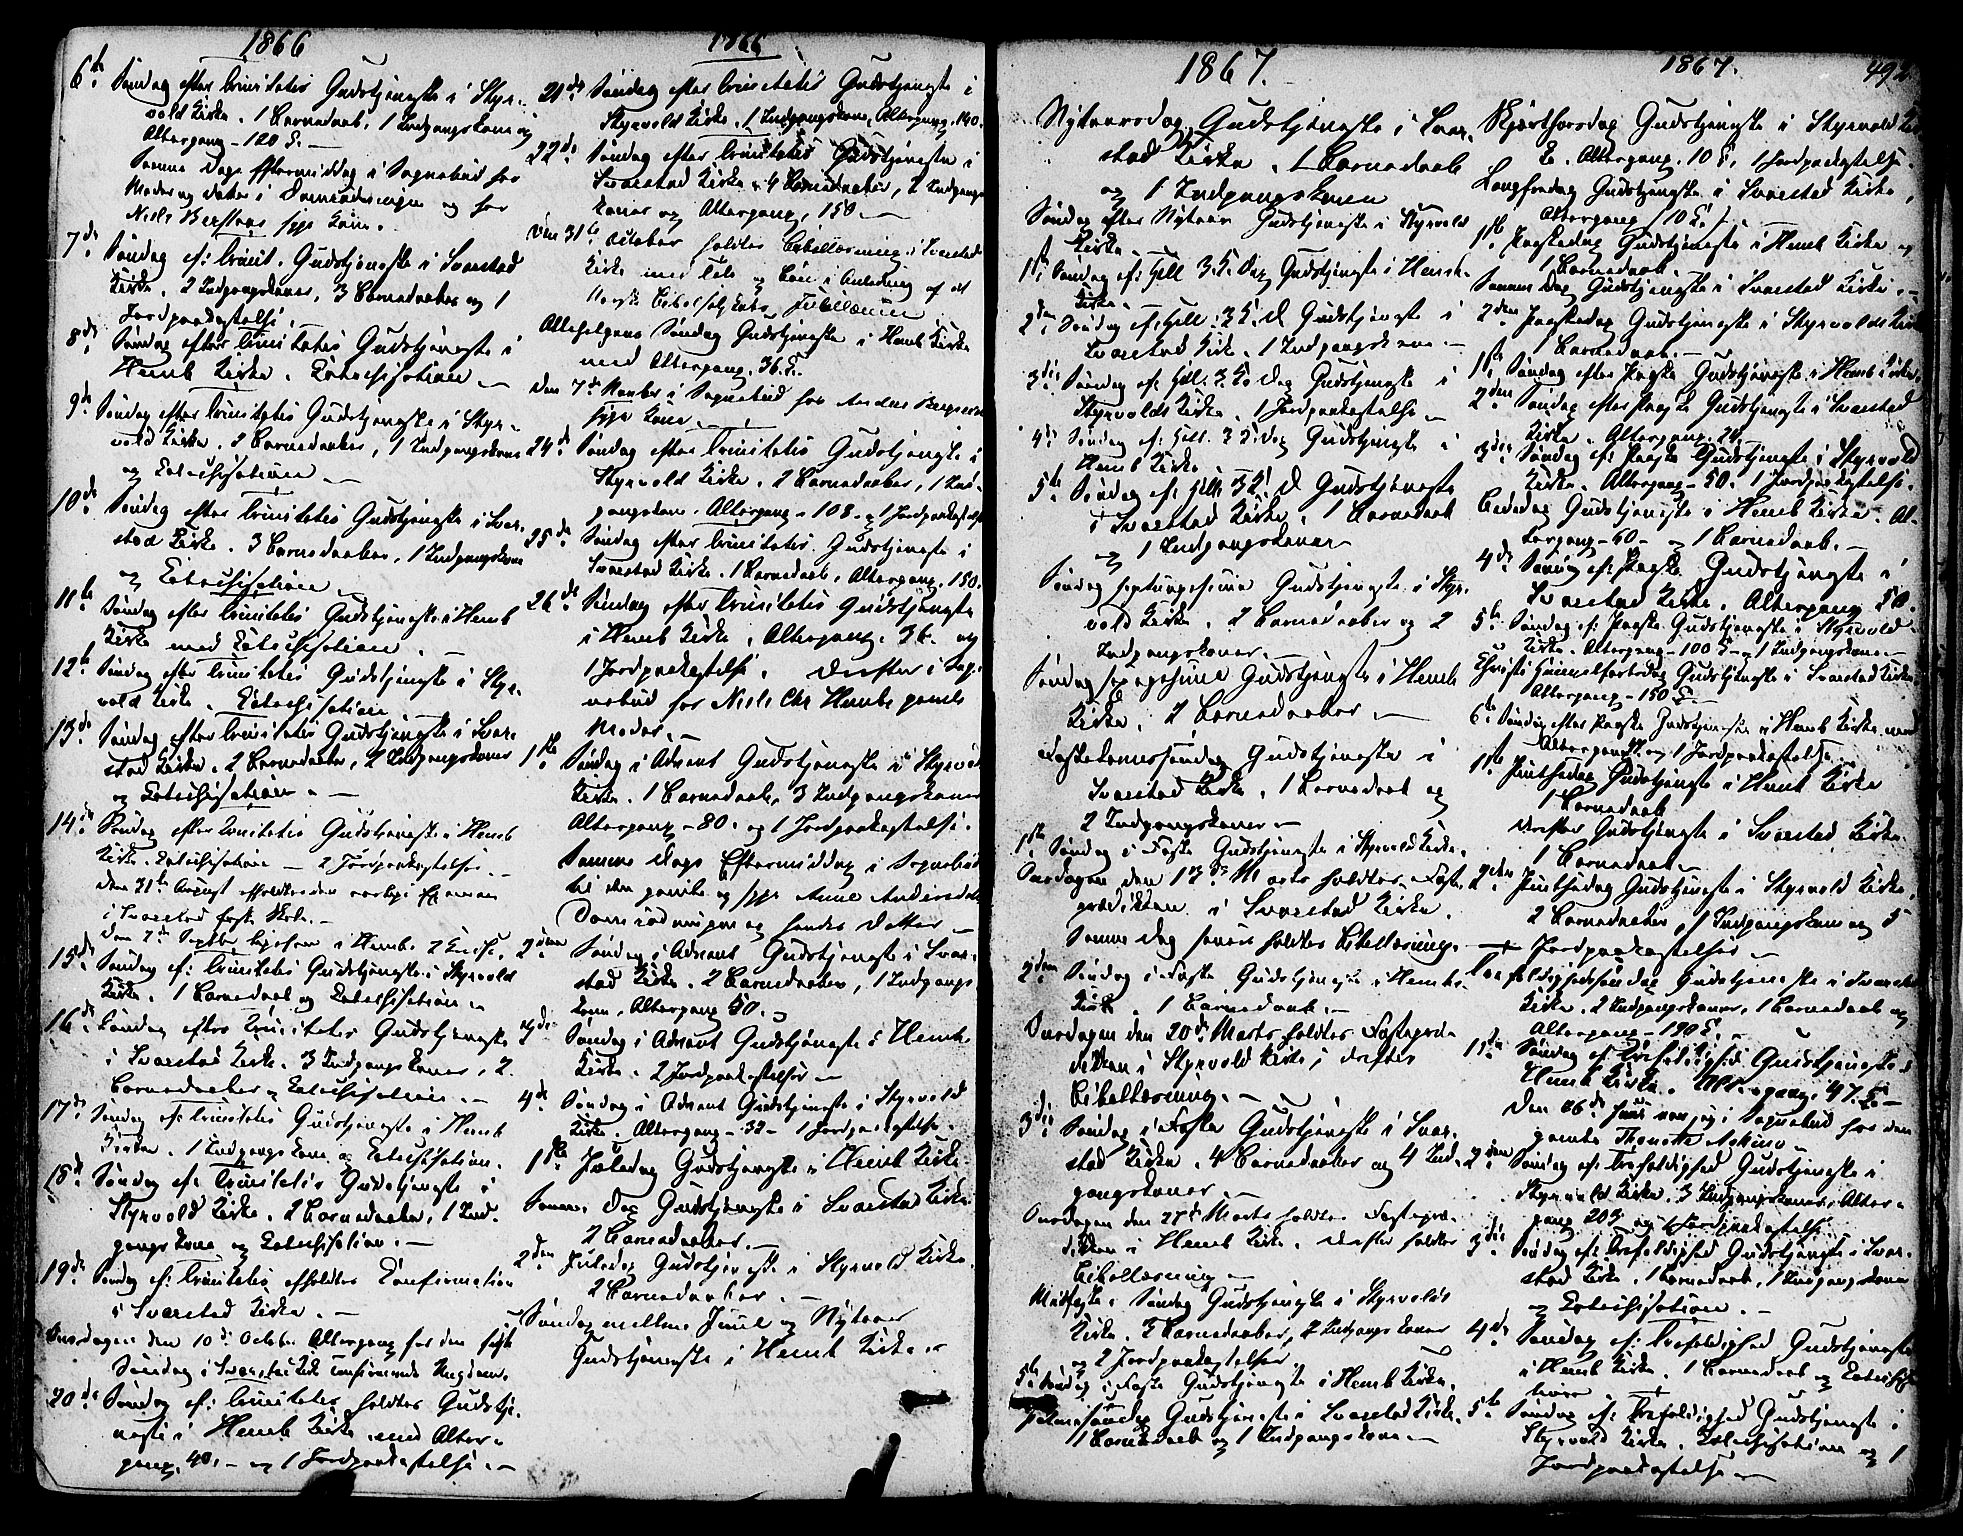 1866
6te Søndag efter Trinitatis Gudstjeneste i Styr-
vold Kirke. 1 Barnedaab, 1 Indgangskone og
Altergang - 120 S. -
Samme Dags Eftermiddag i Sognebud for
Moder og Datter i og for
Niels syge Kone.
7de Søndag ef: Trinit. Gudstjeneste i Svarstad
Kirke. 2 Indgangskoner, 3 Barnedaaber og 1
Jordpaakastelse.
8de Søndag efter Trinitatis Gudstjeneste i
Hemb Kirke. Catechisation -
9de Søndag efter Trinitatis Gudstjeneste i Styr-
vold Kirke. 2 Barnedaaber, 1 Indgangskone
og Catechisation -
10de Søndag efter Trinitatis Gudstjeneste i Svar-
stad Kirke. 3 Barnedaaber, 1 Indgangskone
og Catechisation -
11te Søndag efter Trinitatis Gudstjeneste i Hemb
Kirke med Catechisation. -
12te Søndag efter Trinitatis Gudstjeneste i Styr-
vold Kirke. Catechisation -
13de Søndag efter Trinitatis Gudstjeneste i Svar-
stad Kirke. 2 Barnedaaber, 2 Indgangskoner
og Catechisation. -
14de Søndag efter Trinitatis Gudstjeneste i Hemb
Kirke. Catechisation - 2 Jordpaakastelser. -
Den 31te August afholdtes den aarlige Examen
i Svarstad faste Skole. -
Den 7de Septbr i Hemb.
15de Søndag ef: Trinitatis Gudstjeneste i Styrvold
Kirke. 1 Barnedaab og Catechisation. -
16de Søndag efter Trinitatis Gudstjeneste
i Svarstad Kirke. 3 Indgangskoner, 2
Barnedaaber og Catechisation. -
17de Søndag ef: Trinitatis Gudstjeneste i Hemb
Kirke. 1 Indgangskone og Catechisation.
18de Søndag ef: Trinitatis Gudstjeneste i
Styrvold Kirke. 2 Barnedaaber, 1 Ind-
gangskone og Catechisation. -
19de Søndag ef: Trinitatis afholdtes Confirmation
i Svarstad Kirke. -
Onsdagen den 10de October Altergang for den sidste
Søndag i Svarstad Kirke confirmerede Ungdom.
20de Søndag ef: Trinitatis holdtes Gudstje-
neste i Hemb Kirke med Alter-
gang. 40. - og 1 Jordpaakastelse. -
1866
21de Søndag efter Trinitatis Gudstjeneste i
Styrvold Kirke. 1 Indgangskone, Altergang, 140.
22de Søndag efter Trinitatis Gudstjeneste i
Svarstad Kirke. 4 Barnedaaber, 2 Indgangs-
koner og Altergang, 150. -
Den 31te October holdtes Bibellæsning i Svarstad
Kirke med Tale og Bøn i Anledning af det
Norske Bibelselskabs Jubilæum.
Allehelgens Søndag Gudstjeneste i Hemb Kirke
med Altergang. 36 S.
Den 7de Novbr i Sognebud for Anders
syge Kone. -
24de Søndag efter Trinitatis Gudstjeneste i
Styrvold Kirke. 2 Barnedaaber, 1 Ind-
gangskone. Altergang - 108. og 1 Jordpaakastelse
25de Søndag efter Trinitatis. Gudstjeneste i
Svarstad Kirke. 1 Barnedaab, Altergang. 150.
26de Søndag efter Trinitatis Gudstjeneste
i Hemb Kirke. Altergang. 36. og
1 Jordpaakastelse. Derefter i Sog-
nebud for Niels Chr Hembs gamle
Moder. -
1ste Søndag i Advent Gudstjeneste i Styrvold
Kirke. 1 Barnedaab, 3 Indgangskoner
Altergang - 80. og 1 Jordpaakastelse.
Samme Dags Eftermiddag i Sognebud
til den gamle og syge Anne Andersdatter
og hendes Datter -
2den Søndag i Advent Gudstjeneste i Svar-
stad Kirke. 2 Barnedaaber, 1 Indgangs-
kone, Altergang 50. -
3die Søndag i Advent Gudstjeneste i Hemb
Kirke. 2 Jordpaakastelser -
4de Søndag i Advent Gudstjeneste i Styrvold
Kirke. Altergang - 32 - 1 Jordpaakastelse. -
1ste Juledag Gudstjeneste i Hemb Kirke.
Samme Dag Gudstjeneste i Svarstad Kirke
2 Barnedaaber. -
2den Juledag Gudstjeneste i Styrvold Kirke.
2 Barnedaaber. -
Søndag mellem Juul og Nytaar
Gudstjeneste i Hemb Kirke. -
1867.
Nytaarsdag Gudstjeneste i Svar-
stad Kirke. 1 Barnedaab
og 1 Indgangskone
Søndag efter Nytaar Gudstjeneste i Styrvold
Kirke -
1ste Søndag ef: Hell. 3 K. Dag Gudstjeneste i Hemb
Kirke.
2den Søndag ef: Hell. 3 K. D Gudstjeneste i
Svarstad Kirke. 1 Indgangskone -
3die Søndag ef: Hell. 3 K. Dag Gudstjeneste i
Styrvolds Kirke. 1 Jordpaakastelse -
4de Søndag ef: Hell. 3 K. Dag Gudstjeneste i
Hemb Kirke -
5te Søndag ef: Hell. 3 K. D Gudstjeneste
i Svarstad Kirke. 1 Barnedaab
og 1 Indgangskone -
Søndag septuagesima Gudstjeneste i Styr-
vold Kirke. 2 Barnedaaber og 2
Indgangskoner. -
Søndag sexagesima Gudstjeneste i Hemb
Kirke. 2 Barnedaaber. -
Fastelavnssøndag Gudstjeneste i
Svarstad Kirke. 1 Barnedaab og
2 Indgangskoner -
1ste Søndag i Faste Gudstjeneste i Styrvold Kirke.
Onsdagen den 13de Marts holdtes Faste-
prædiken i Svarstad Kirke.
Samme Dag holdtes Bibellæsning.
2den Søndag i Faste Gudstjeneste i Hemb
Kirke. 1 Barnedaab. -
Onsdagen den 20de Marts holdtes Fastepræ-
diken i Styrvold Kirke; derefter
Bibellæsning. -
3die Søndag i Faste Gudstjeneste i Svar-
stad Kirke. 4 Barnedaaber og 4 Ind-
gangskoner -
Onsdagen den 27de Marts holdtes Fastepræ-
diken i Hemb Kirke. Derefter holdtes
Bibellæsning -
Midfaste Søndag Gudstjeneste i Styrvolds
Kirke. 3 Barnedaaber, 2 Indgangskoner
og 2 Jordpaakastelser.
5te Søndag i Faste Gudstjeneste i Hemb Kirke.
Palmesøndag Gudstjeneste i Svarstad Kirke.
1 Barnedaab og 1 Indgangskone. -
1867.
492
Skjærthorsdag Gudstjeneste i Styrvold Kir-
ke. Altergang. 10 S, 1 Jordpaakastelse.
Langfredag Gudstjeneste i Svarstad Kirke,
Altergang 110 S.
1ste Paaskedag Gudstjeneste i Hemb Kirke og
1 Barnedaab.
Samme Dag Gudstjeneste i Svarstad Kirke. -
2den Paaskedag Gudstjeneste i Styrvolds Kirke
1 Barnedaab. -
1ste Søndag efter Paaske Gudstjeneste i Hemb Kirke.
2den Søndag efter Paaske Gudstjeneste i Svarstad
Kirke. Altergang.
3die Søndag ef: Paaske Gudstjeneste i Styrvold
Kirke. Altergang - 50. 1 Jordpaakastelse.
Bededag Gudstjeneste i Hemb Kirke. Al-
tergang - 60 - og 1 Barnedaab. -
4de Søndag ef: Paaske Gudstjeneste i
Svarstad Kirke. Altergang 50.
5te Søndag ef: Paaske Gudstjeneste i Styrvold
Kirke. Altergang - 100 S - og 1 Indgangskone. -
Christi Himmelfartsdag Gudstjeneste i Svarstad Kirke
Altergang - 150 S. -
6te Søndag efter Paaske Gudstjeneste i Hemb Kirke med
Altergang og 1 Jordpaakastelse
1ste Pintsedag Gudstjeneste i Hemb Kirke
1 Barnedaab
Derefter Gudstjeneste i Svarstad Kirke.
1 Barnedaab -
2den Pintsedag Gudstjeneste i Styrvold Kirke.
2 Barnedaaber, 1 Indgangskone og 5
Jordpaakastelser -
Trefoldighedssøndag Gudstjeneste i Svarstad
Kirke. 2 Indgangskoner, 1 Barnedaab og
Altergang - 190 S. -
1ste Søndag ef: Trefoldighed Gudstjeneste i
Hemb Kirke. Altergang. 47. S. -
Den 26de Juni var jeg i Sognebud hos den
gamle
2den Søndag ef: Trefoldighed Gudstjeneste i
Styrvold Kirke. 3 Indgangskoner, Alter-
gang 203 og 1 Jordpaakastelse.
3die Søndag ef: Trefoldighed Gudstjeneste i Svar-
stad Kirke. 1 Barnedaab, 1 Indgangskone
og Catechisation. -
4de Søndag ef: Trefoldighed Gudstjeneste
i Hemb Kirke. 1 Barnedaab og Catechisa-
tion
5te Søndag ef: Trefoldighed Gudstjeneste i
Styrvold Kirke. Catechisation og 1
Jordpaakastelse -